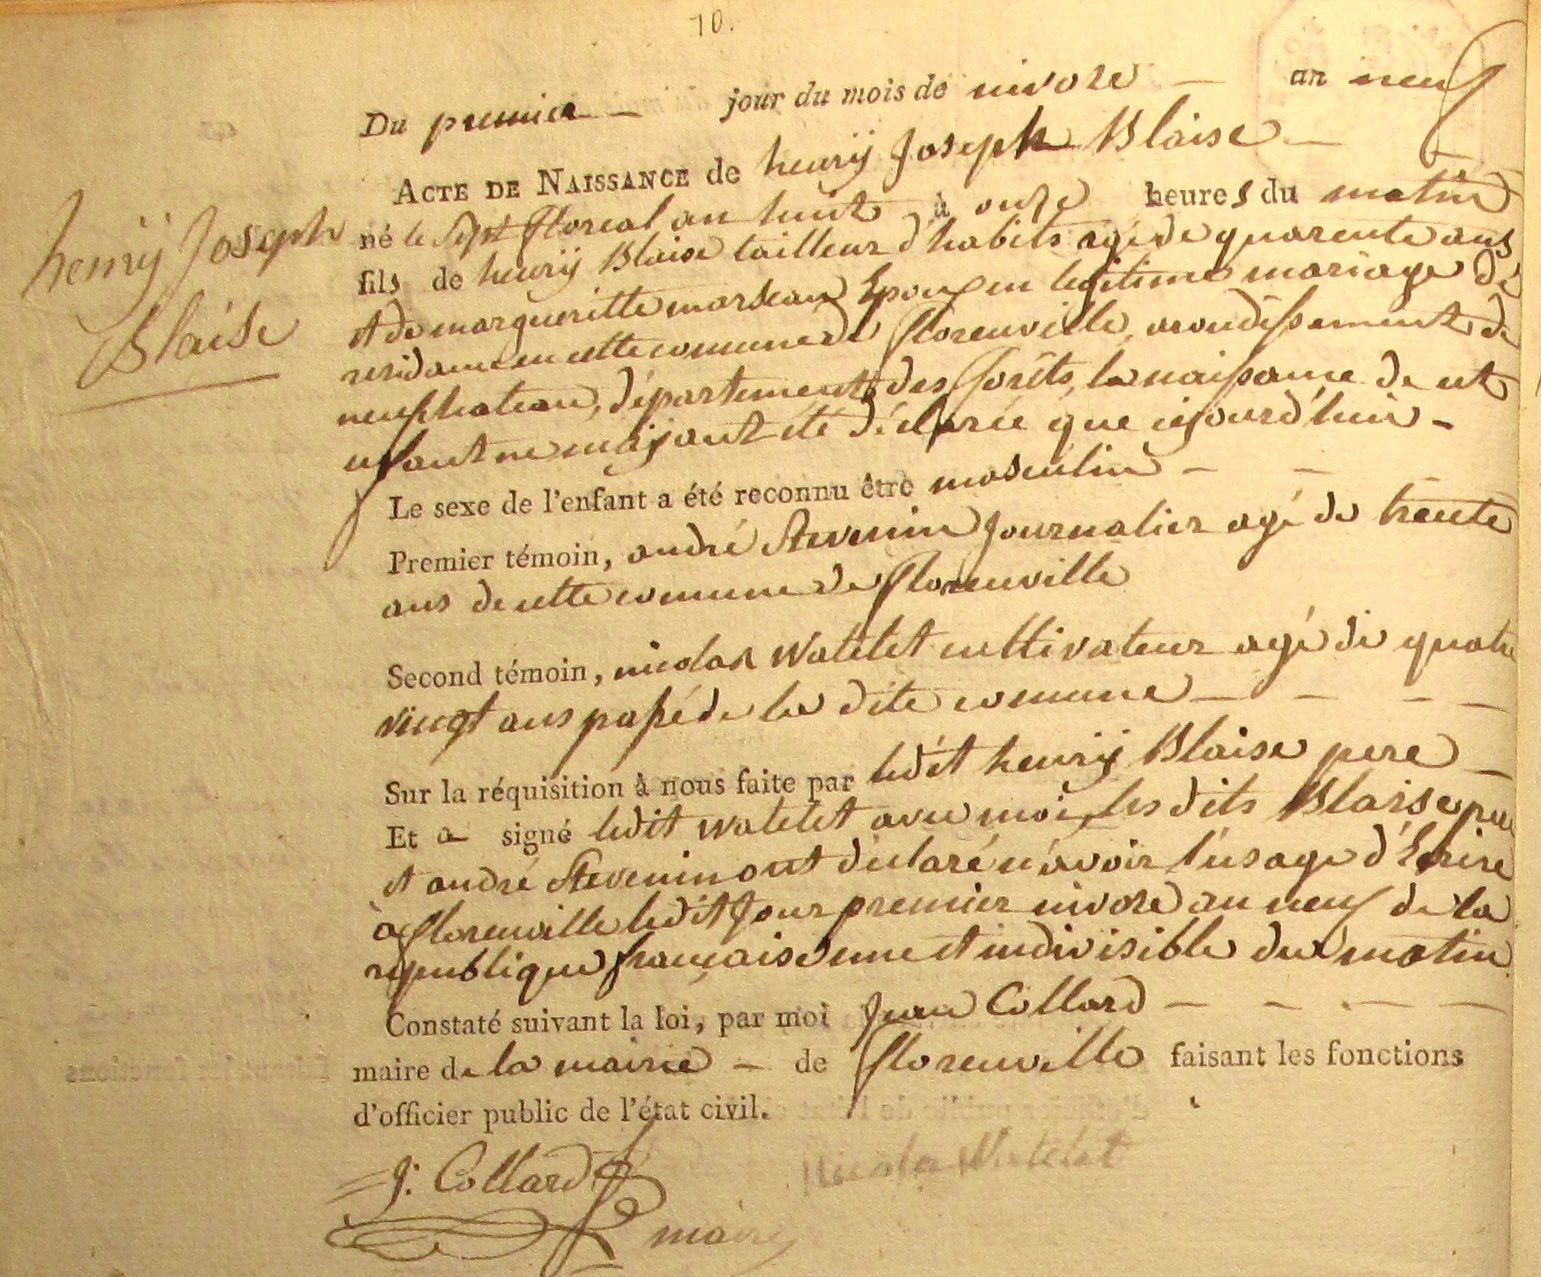 10.
Du premier jour du mois de nivose an neuf
ACTE DE NAISSANCE de henrÿ Joseph Blaise
henrÿ Joseph
Blaise
né le Sept floreal an huit à onze heures du matin
fils de henrÿ Blaise tailleur d'habits agé de quarente ans
et de margueritte marseau Epoux en legitime mariage de
residance en cette comune de florenville, arondissement de
neufchateau, département des forêts, la naissance de cet
enfant ne m'aÿant été déclarée que cejourd'huir
Le sexe de l'enfant a été reconnu être masculin
Premier témoin, andré Stevenin Journalier agé de trente
ans de cette comune de florenville
Second témoin, nicolas Watelet cultivateur agé de quatre
vingt ans passé de la dite comune
Sur la réquisition à nous faite par ledit henrÿ Blaise pere
Et a signé ledit watelet avec moi, les dits Blaise pere
et andré Stevenin ont déclaré n'avoir l'usage d'Ecrire
à florenville ledit Jour premier nivose an neuf de la
republique française une et indivisible du matin
Constaté suivant la loi, par moi Jean Collard
maire de la mairie de florenville faisant les fonctions
d'officier public de l'état civil.
J: Collard
Nicolas Watelet
maire